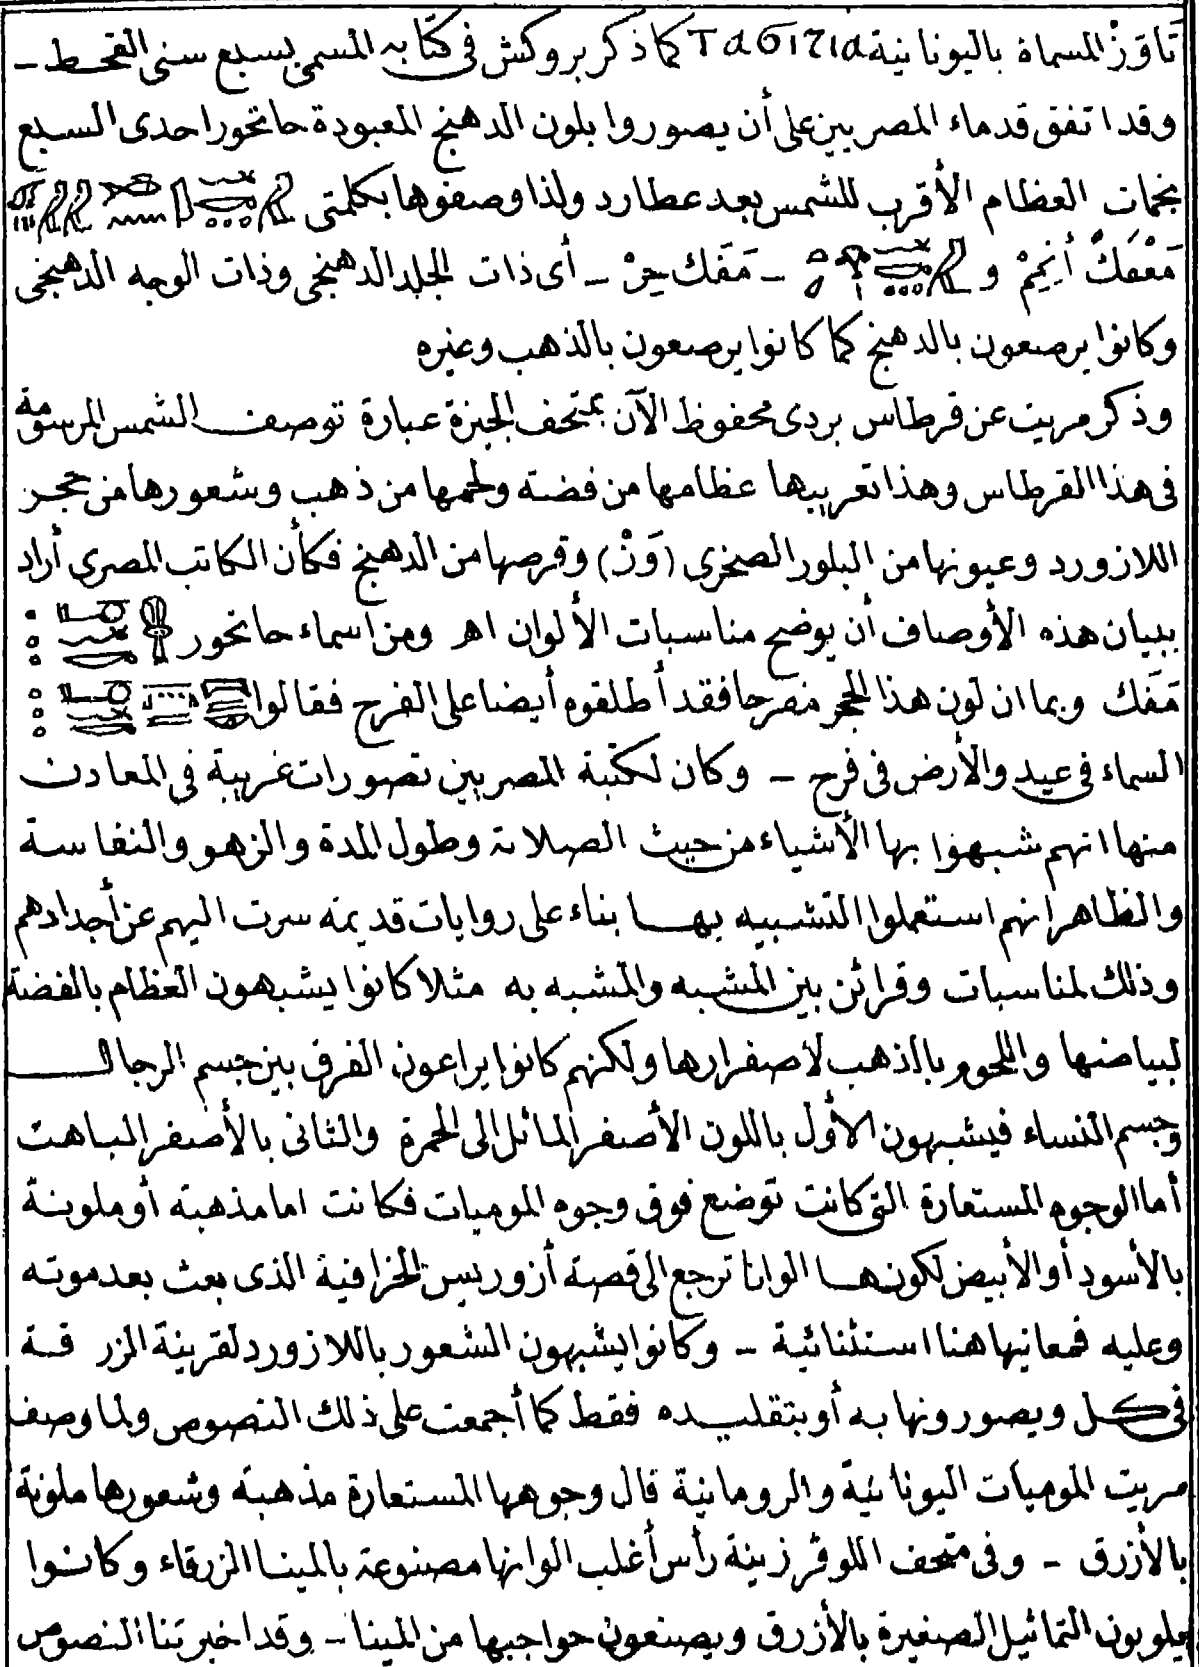 تَاوَزْ المسماة باليونانية كما ذكر بروكش فى كتابه المسمى بسبع سنى القحط –
وقد اتفق قدماء المصريين على أن يصوروا بلون الدهنج المعبودة حاتحور احدى السبع
نجمات العظام الأقرب للشمس بعد عطارد ولذا وصفوها بكلمتى
مَعْفَكْ أَنِيمْ و – مَفَك حِرْ – أى ذات الجلد الدهنجى وذات الوجه الدهنجى
وكانوا يرصعون بالدهنج كما كانوا يرصعون بالذهب وغيره
وذكر مريت عن قرطاس بردى محفوظ الآن بمتحف الجيزة عبارة توصف الشمس المرسومة
فى هذا القرطاس وهذا تعريبها عظامها من فضة ولحمها من ذهب وشعورها من حجر
اللازورد وعيونها من البلور الصخرى (وَزْ) وقرصها من الدهنج فكأن الكاتب المصرى أراد
ببيان هذه الأوصاف أن يوضح مناسبات الألوان اهـ ومن اسماء حاتحور
مَفَك وبما ان لون هذا الحجر مفرحا فقد أطلقوه أيضا على الفرح فقالوا
السماء فى عيد والأرض فى فرح – وكان لكتبة المصريين تصورات غريبة فى المعادن
منها انهم شبهوا بها الأشياء من حيث الصلابة وطول المدة والزهو والنفاسة
والظاهر انهم استعملوا التشبيه بها بناء على روايات قديمة سرت اليهم عن أجدادهم
وذلك لمناسبات وقرائن بين المشبه والمشبه به مثلا كانوا يشبهون العظام بالفضة
لبياضها واللحوم بالذهب لاصفرارها ولكنهم كانوا يراعون الفرق بين جسم الرجال
وجسم النساء فيشبهون الأول باللون الأصفر المائل الى الحمرة والثانى بالأصفر الباهت
أما الوجوه المستعارة التى كانت توضع فوق وجوه الموميات فكانت اما مذهبة أو ملونة
بالأسود أو الأبيض لكونها الوانا ترجع الى قصة أزوريس الخرافية الذى بعث بعد موته
وعليه فمعانيها هنا استثنائية – وكانوا يشبهون الشعور باللازورد لقرينة الزرقة
فى كل ويصورونها به أو بتقليده فقط كما أجمعت على ذلك النصوص ولما وصف
مريت الموميات اليونانية والرومانية قال وجوهها المستعارة مذهبة وشعورها ملونة
بالأزرق – وفى متحف اللوڤر زينة رأس أغلب الوانها مصنوعة بالمينا الزرقاء وكانوا
يلونون التماثيل الصغيرة بالأزرق ويصنعون حواجبها من المينا – وقد اخبرتنا النصوص